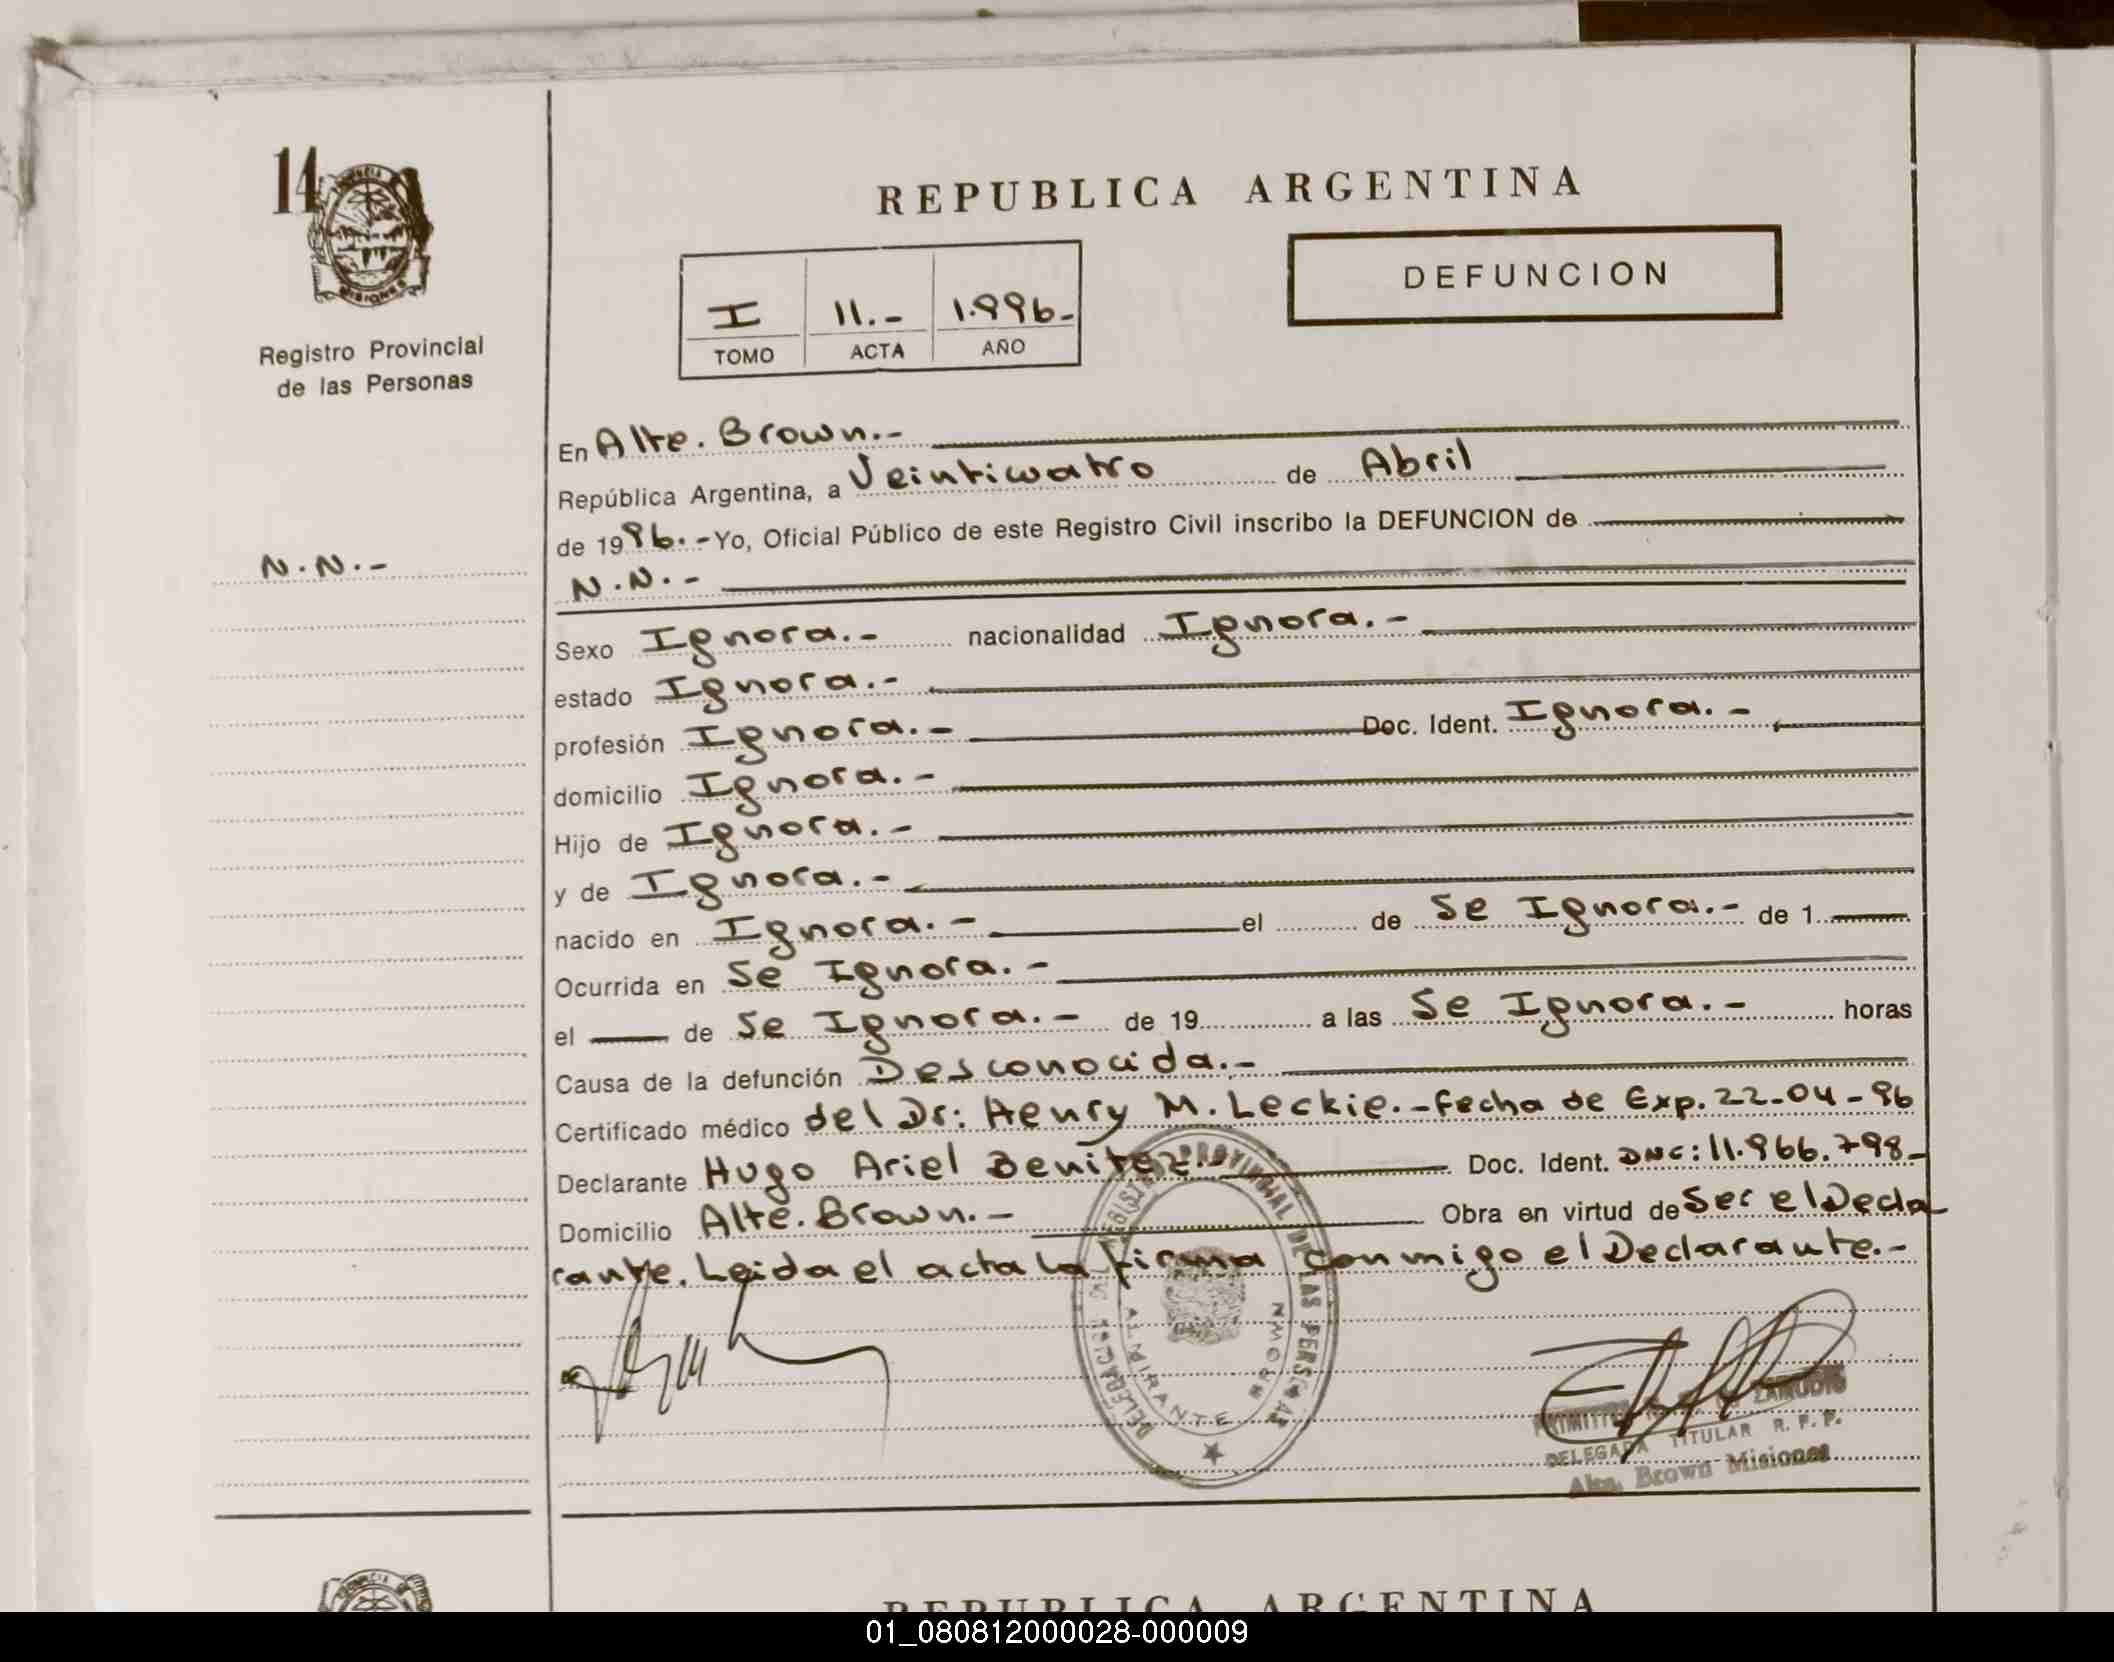 14
PROVINCIA DE
MISIONES
Registro Provincial
de las Personas
N.N.-
REPUBLICA ARGENTINA
I 11.- 1.996-
TOMO ACTA AÑO
DEFUNCION
En Alte. Brown.-
República Argentina, a Veinticuatro de Abril
de 1996.- Yo, Oficial Público de este Registro Civil inscribo la DEFUNCION de
N.N.-
Sexo Ignora.- nacionalidad Ignora.-
estado Ignora.-
profesión Ignora.- Doc. Ident. Ignora.-
domicilio Ignora.-
Hijo de Ignora.-
y de Ignora.-
nacido en Ignora.- el de Se Ignora.- de 1
Ocurrida en Se Ignora.-
el de Se Ignora.- de 19 a las Se Ignora.- horas
Causa de la defunción Desconocida.-
Certificado médico del Dr: Henry M. Leckie.- Fecha de Exp. 22-04-96
Declarante Hugo Ariel Benitez.- Doc. Ident. DNC: 11.966.798-
Domicilio Alte. Brown.- Obra en virtud de Ser el Decla
rante. Leida el acta la firma conmigo el Declarante.-
REGISTRO PROVINCIAL DE LAS PERSONAS
DELEGACION
ALMIRANTE BROWN
ZAMUDIO
DELEGADA TITULAR R. P. P.
Alte. Brown Misiones
REPUBLICA ARGENTINA
01_080812000028-000009